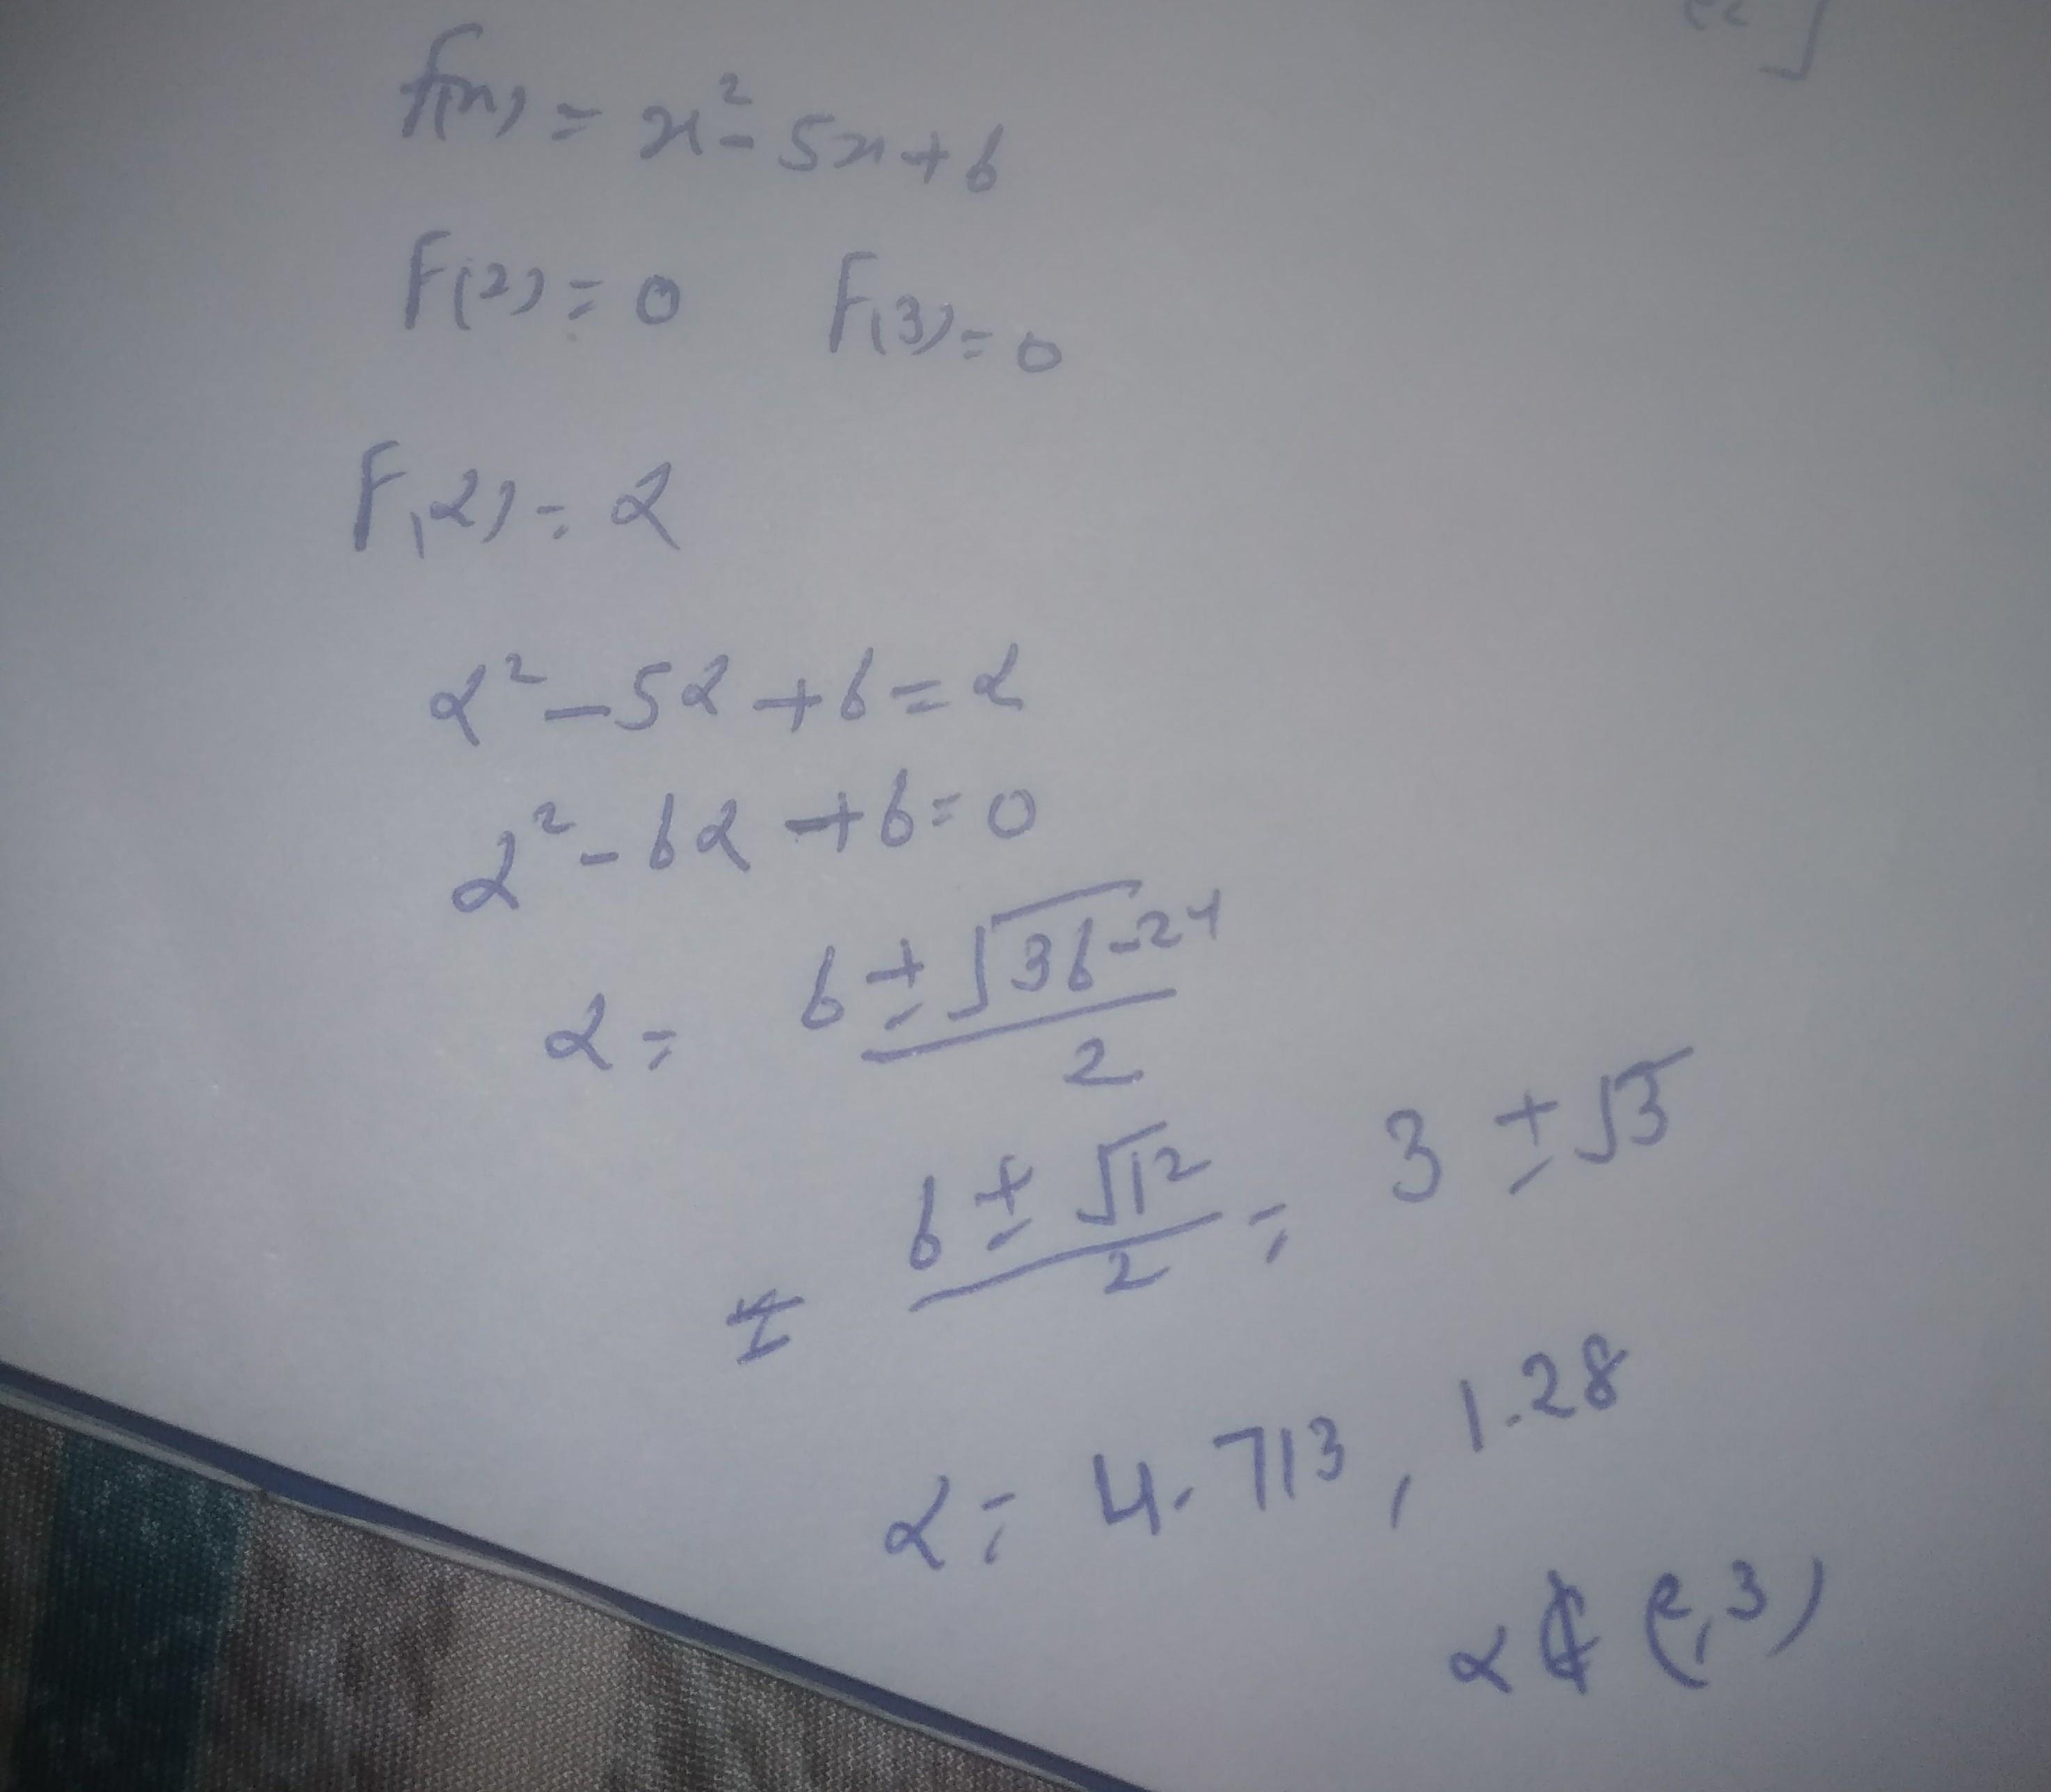 f(x) = x² - 5x + 6
F(2) = 0 F(3) = 0
F(α) = α
α² - 5α + 6 = α
α² - 6α + 6 = 0
α = (6 ± √(36-24))/2
= (6 ± √12)/2 = 3 ± √3
α = 4.713, 1.28
α ∉ (2,3)